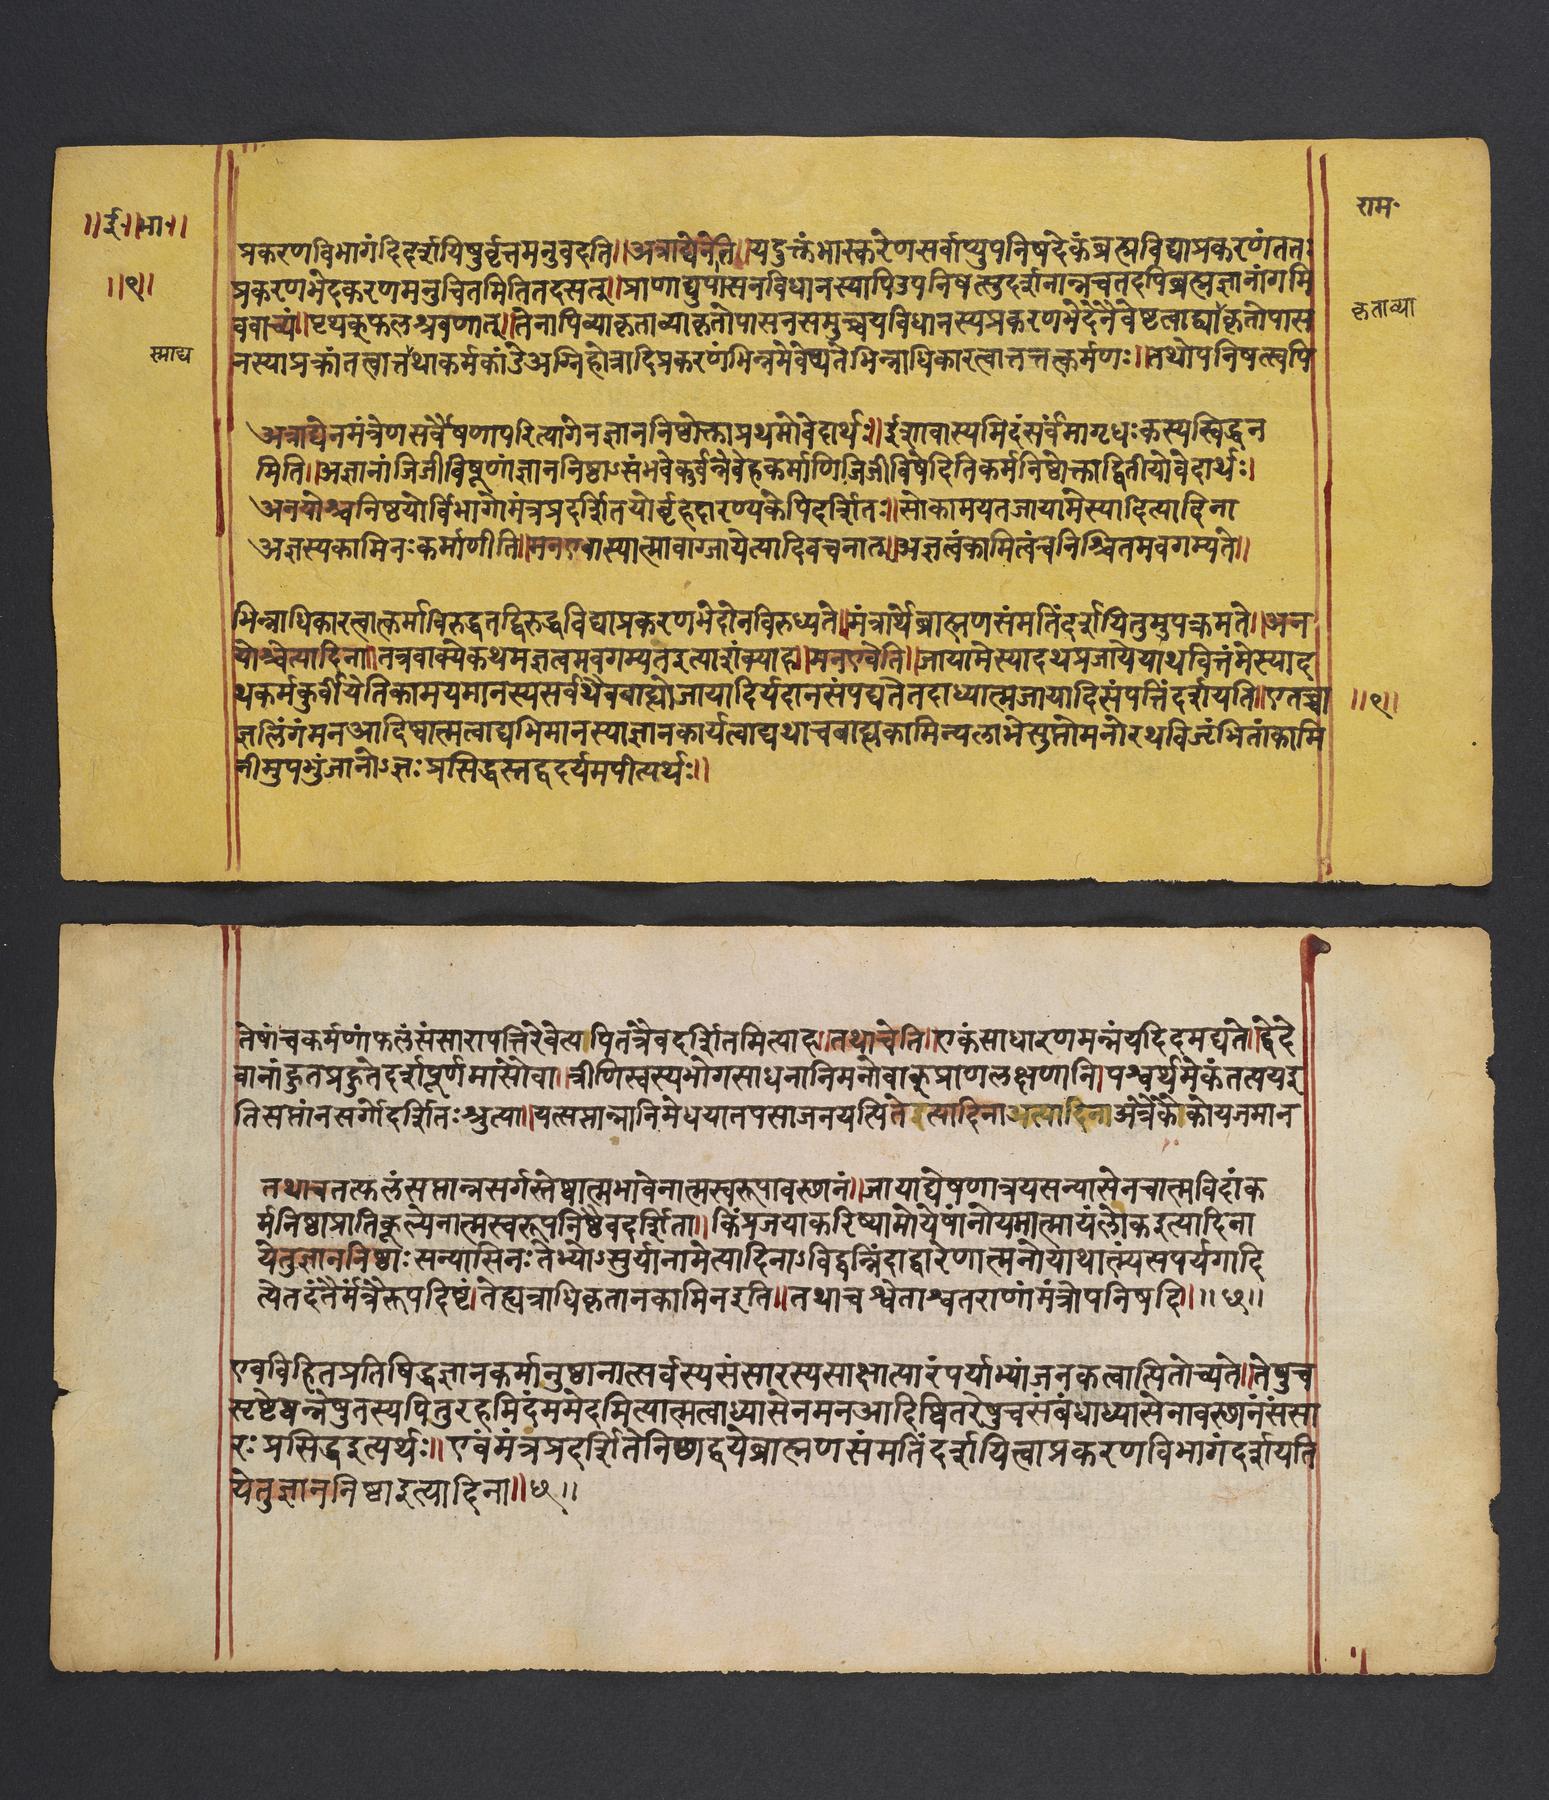 ॥ई॰॥भा॰॥
॥९॥
राम॰
प्रकरणविभागंदिदर्शयिषुर्वृत्तमनुवदति॥अत्राद्येनेति॥यदुक्तंभास्करेणसर्वाप्युपनिषदेकंब्रह्मविद्याप्रकरणंततः
प्रकरणभेदकरणमनुचितमितितदसत्॥प्राणाद्युपासनविधानस्यापिउपनिषत्सुदर्शनान्नचतदपिब्रह्मज्ञानांगमि
ववाच्यं॥पृथक्फलश्रवणात्॥तेनापिव्याकृताव्याकृतोपासनसमुच्चयविधानस्यप्रकरणभेदेनैवेष्टत्वाद्व्याकृतोपास
कृताव्या
नस्याप्रक्रांतत्वात्तथाकर्मकांडेअग्निहोत्रादिप्रकरणंभिन्नमेवेष्यतेभिन्नाधिकारत्वात्तत्तत्कर्मणः॥तथोपनिषत्स्वपि
स्माद्य
अत्राद्येनमंत्रेणसर्वैषणापरित्यागेनज्ञाननिष्ठोक्ताप्रथमोवेदार्थः॥ईशावास्यमिदंसर्वंमागृधःकस्यस्विद्धन
मिति॥अज्ञानांजिजीविषूणांज्ञाननिष्ठाऽसंभवेकुर्वन्नेवेहकर्माणिजिजीविषेदितिकर्मनिष्ठोक्ताद्वितीयोवेदार्थः।
अनयोश्चनिष्ठयोर्विभागोमंत्रप्रदर्शितयोर्बृहदारण्यकेपिदर्शितः॥सोकामयतजायामेस्यादित्यादिना
अज्ञस्यकामिनःकर्माणीति॥मनएवास्यात्मावाग्जायेत्यादिवचनात्॥अज्ञत्वंकामित्वंचनिश्चितमवगम्यते॥
भिन्नाधिकारत्वात्कर्माविरुद्धतद्विरुद्धविद्याप्रकरणभेदोनविरुध्यते॥मंत्रार्थेब्राह्मणसंमतिंदर्शयितुमुपक्रमते॥अन
योश्चेत्यादिना॥तत्रवाक्येकथमज्ञत्वमवगम्यतइत्याशंक्याह॥मनएवेति॥जायामेस्यादथप्रजायेयाथवित्तंमेस्याद
थकर्मकुर्वीयेतिकामयमानस्यसर्वथैवबाह्योजायादिर्यदानसंपद्यतेतदाध्यात्मजायादिसंपत्तिंदर्शयति॥एतच्चा
॥९॥
ज्ञलिंगंमनआदिष्वात्मत्वाद्यभिमानस्याज्ञानकार्यत्वाद्यथाचबाह्यकामिन्यलाभेसुप्तोमनोरथविजृंभितांकामि
नीमुपभुंजानोऽज्ञःप्रसिद्धस्तद्वदयमपीत्यर्थः॥
तेषांचकर्मणांफलंसंसारापत्तिरेवेत्यपितत्रैवदर्शितमित्याह॥तथाचेति॥एकंसाधारणमन्नंयदिदमद्यते॥द्वेदे
वानांहुतप्रहुतेदर्शपूर्णमासौवा॥त्रीणिस्वस्यभोगसाधनानिमनोवाक्प्राणलक्षणानि।पश्वर्थमेकंतत्पयइ
तिसप्तांनसर्गोदर्शितःश्रुत्या॥यत्सप्तान्नानिमेधयातपसाजनयत्पितेत्यादिनाअत्रैकैकोयजमान
तथाचतत्फलंसप्तान्नसर्गस्तेष्वात्मभावेनात्मस्वरूपावस्थानं॥जायाद्येषणात्रयसन्यासेनचात्मविदांक
र्मनिष्ठाप्रातिकूल्येनात्मस्वरूपनिष्ठैवदर्शिता॥किंप्रजयाकरिष्यामोयेषांनोयमात्मायंलोकइत्यादिना
येतुज्ञाननिष्ठाःसन्यासिनःतेभ्योऽसुर्यानामेत्यादिनाऽविद्वन्निंदाद्वारेणात्मनोयाथात्म्यंसपर्यगादि
त्येतदंतैर्मंत्रैरूपदिष्टं।तेह्यत्राधिकृतानकामिनइति॥तथाचश्वेताश्वतराणांमंत्रोपनिषदि॥॥छ॥
एवविहितप्रतिषिद्धज्ञानकर्मानुष्ठानात्सर्वस्यसंसारस्यसाक्षात्पारंपर्याभ्यांजनकत्वात्पितोच्यते॥तेषुच
सृष्टेष्वन्नेषुतस्यपितुरहमिदंममेदमित्यात्मत्वाध्यासेनमनआदिष्वितरेषुचसंबंधाध्यासेनावस्थानंसंसा
रःप्रसिद्धइत्यर्थः॥एवंमंत्रप्रदर्शितेनिष्ठाद्वयेब्राह्मणसंमतिंदर्शयित्वाप्रकरणविभागंदर्शयति
येतुज्ञाननिष्ठाइत्यादिना॥छ॥